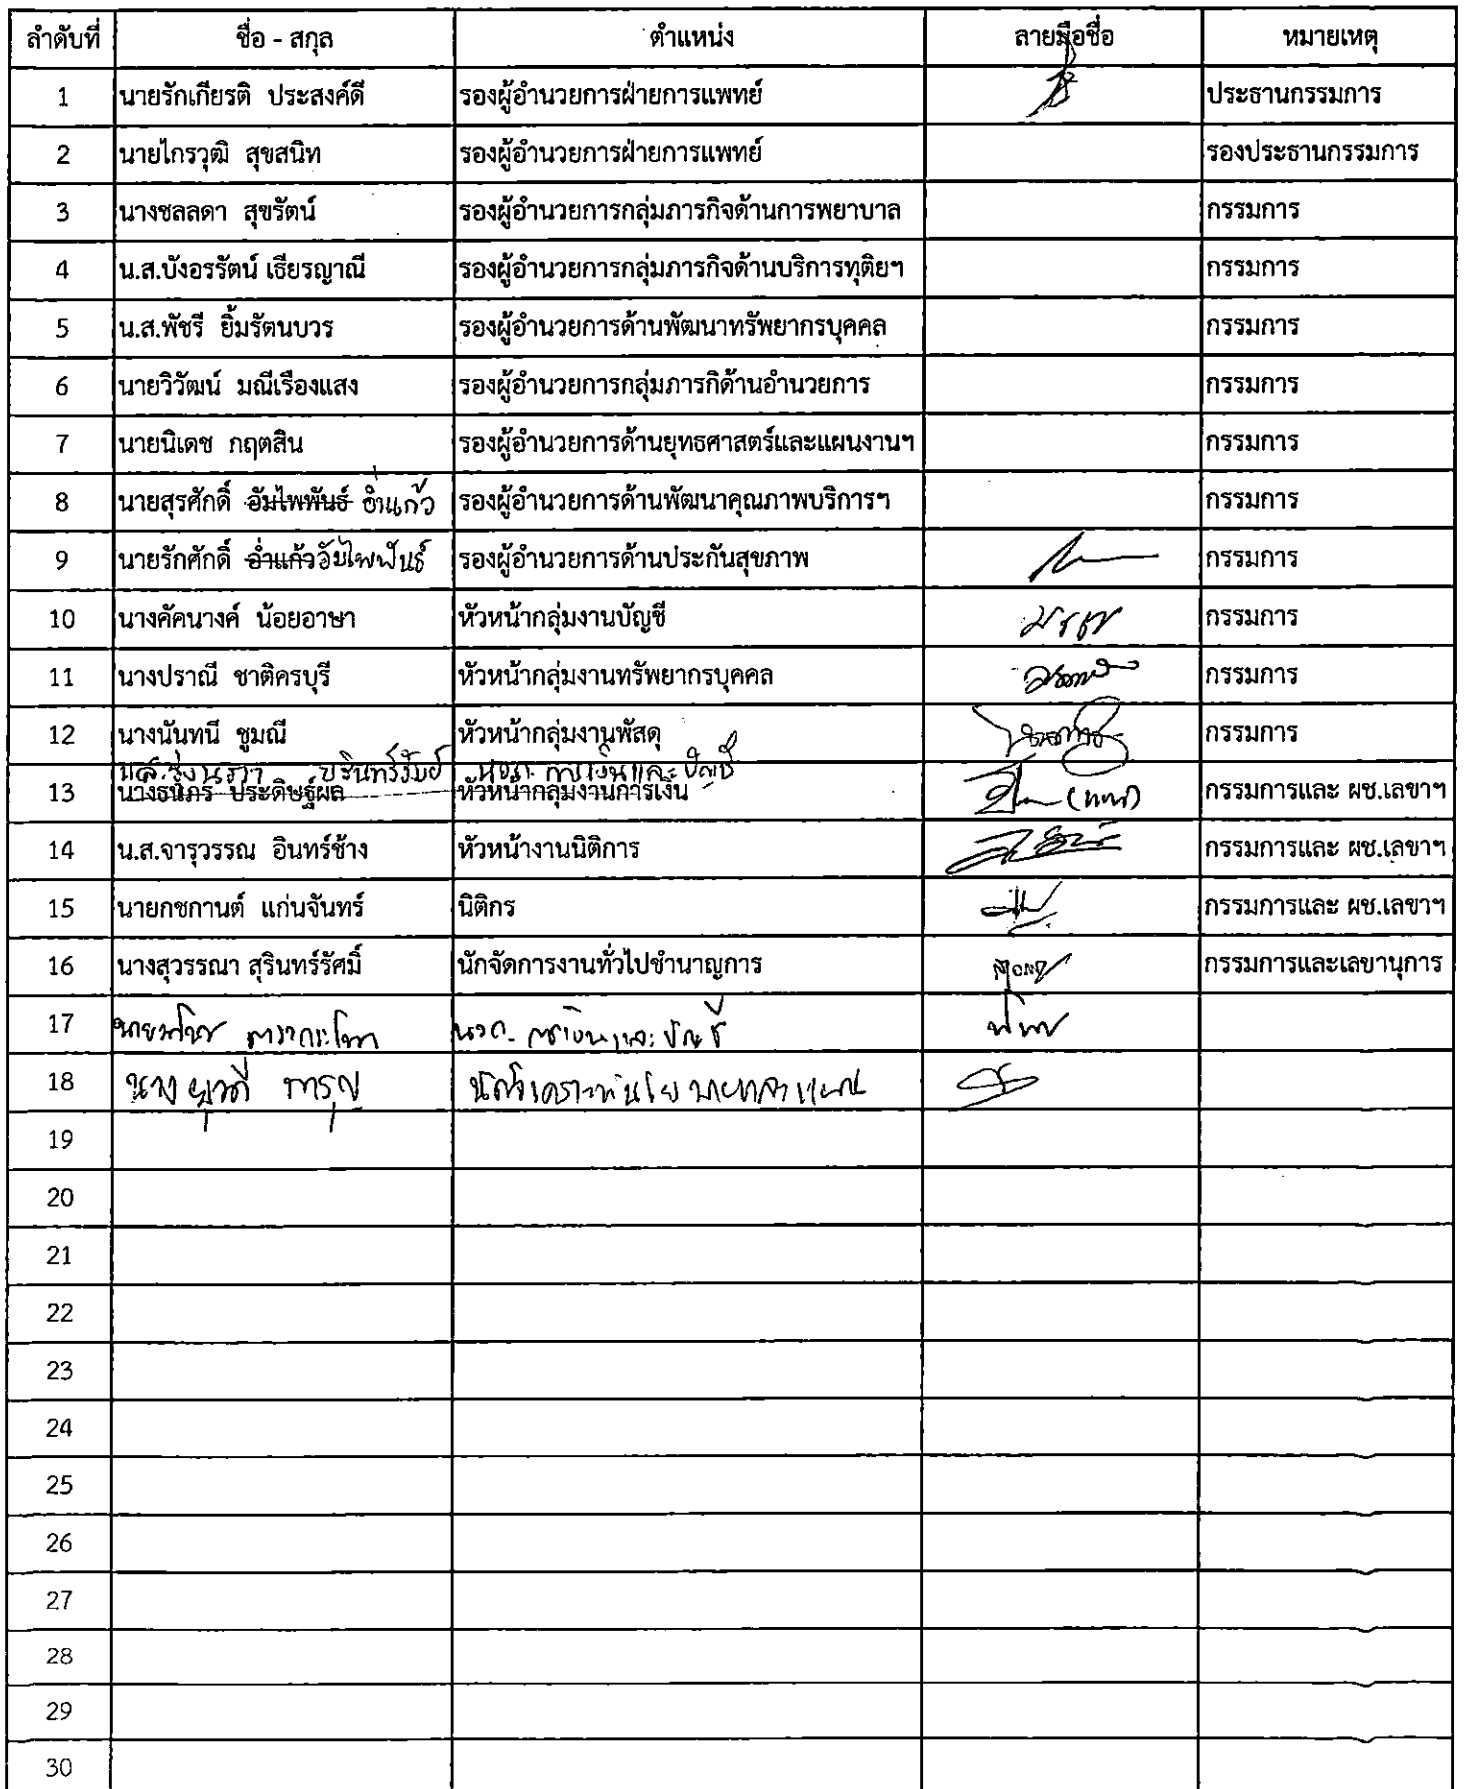 ลำดับที่ ชื่อ - สกุล ตำแหน่ง ลายมือชื่อ หมายเหตุ
1 นายรักเกียรติ ประสงค์ดี รองผู้อำนวยการฝ่ายการแพทย์ ประธานกรรมการ
2 นายไกรวุฒิ สุขสนิท รองผู้อำนวยการฝ่ายการแพทย์ รองประธานกรรมการ
3 นางชลลดา สุขรัตน์ รองผู้อำนวยการกลุ่มภารกิจด้านการพยาบาล กรรมการ
4 น.ส.บังอรรัตน์ เธียรญาณี รองผู้อำนวยการกลุ่มภารกิจด้านบริการทุติยฯ กรรมการ
5 น.ส.พัชรี ยิ้มรัตนบวร รองผู้อำนวยการด้านพัฒนาทรัพยากรบุคคล กรรมการ
6 นายวิวัฒน์ มณีเรืองแสง รองผู้อำนวยการกลุ่มภารกิด้านอำนวยการ กรรมการ
7 นายนิเดช กฤตสิน รองผู้อำนวยการด้านยุทธศาสตร์และแผนงานฯ กรรมการ
8 นายสุรศักดิ์ อัมไพพันธ์ อ่ำแก้ว รองผู้อำนวยการด้านพัฒนาคุณภาพบริการฯ กรรมการ
9 นายรักศักดิ์ อ่ำแก้ว อัมไพพันธ์ รองผู้อำนวยการด้านประกันสุขภาพ กรรมการ
10 นางคัคนางค์ น้อยอาษา หัวหน้ากลุ่มงานบัญชี กรรมการ
11 นางปราณี ชาติครบุรี หัวหน้ากลุ่มงานทรัพยากรบุคคล กรรมการ
12 นางนันทนี ชูมณี หัวหน้ากลุ่มงานพัสดุ กรรมการ
นวก. การเงินและบัญชี
13 นางธนิภร ประดิษฐ์ผล หัวหน้ากลุ่มงานการเงิน (แทน) กรรมการและ ผช.เลขาฯ
14 น.ส.จารุวรรณ อินทร์ช้าง หัวหน้างานนิติการ กรรมการและ ผช.เลขาฯ
15 นายกชกานต์ แก่นจันทร์ นิติกร กรรมการและ ผช.เลขาฯ
16 นางสุวรรณา สุรินทร์รัศมิ์ นักจัดการงานทั่วไปชำนาญการ กรรมการและเลขานุการ
17 นวก. การเงินและบัญชี
18 นาง ยุวดี การุญ นักวิเคราะห์นโยบายและแผน
19
20
21
22
23
24
25
26
27
28
29
30